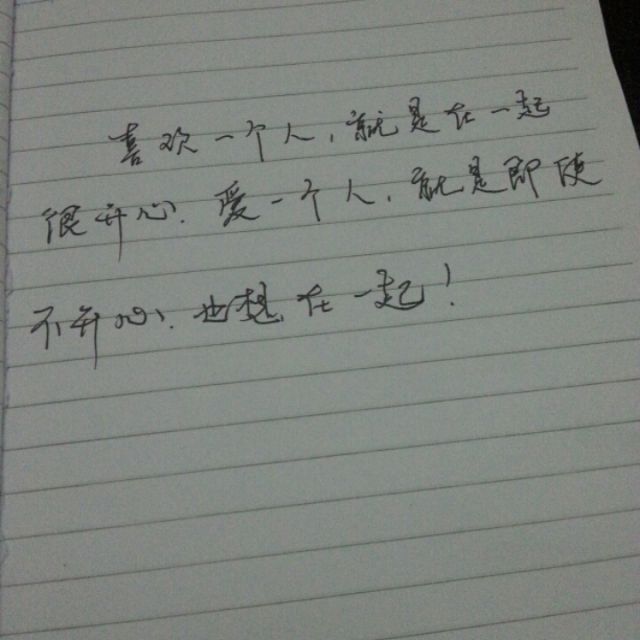 喜欢一个人,就是在一起
很开心.爱一个人,就是即使
不开心.也想在一起!